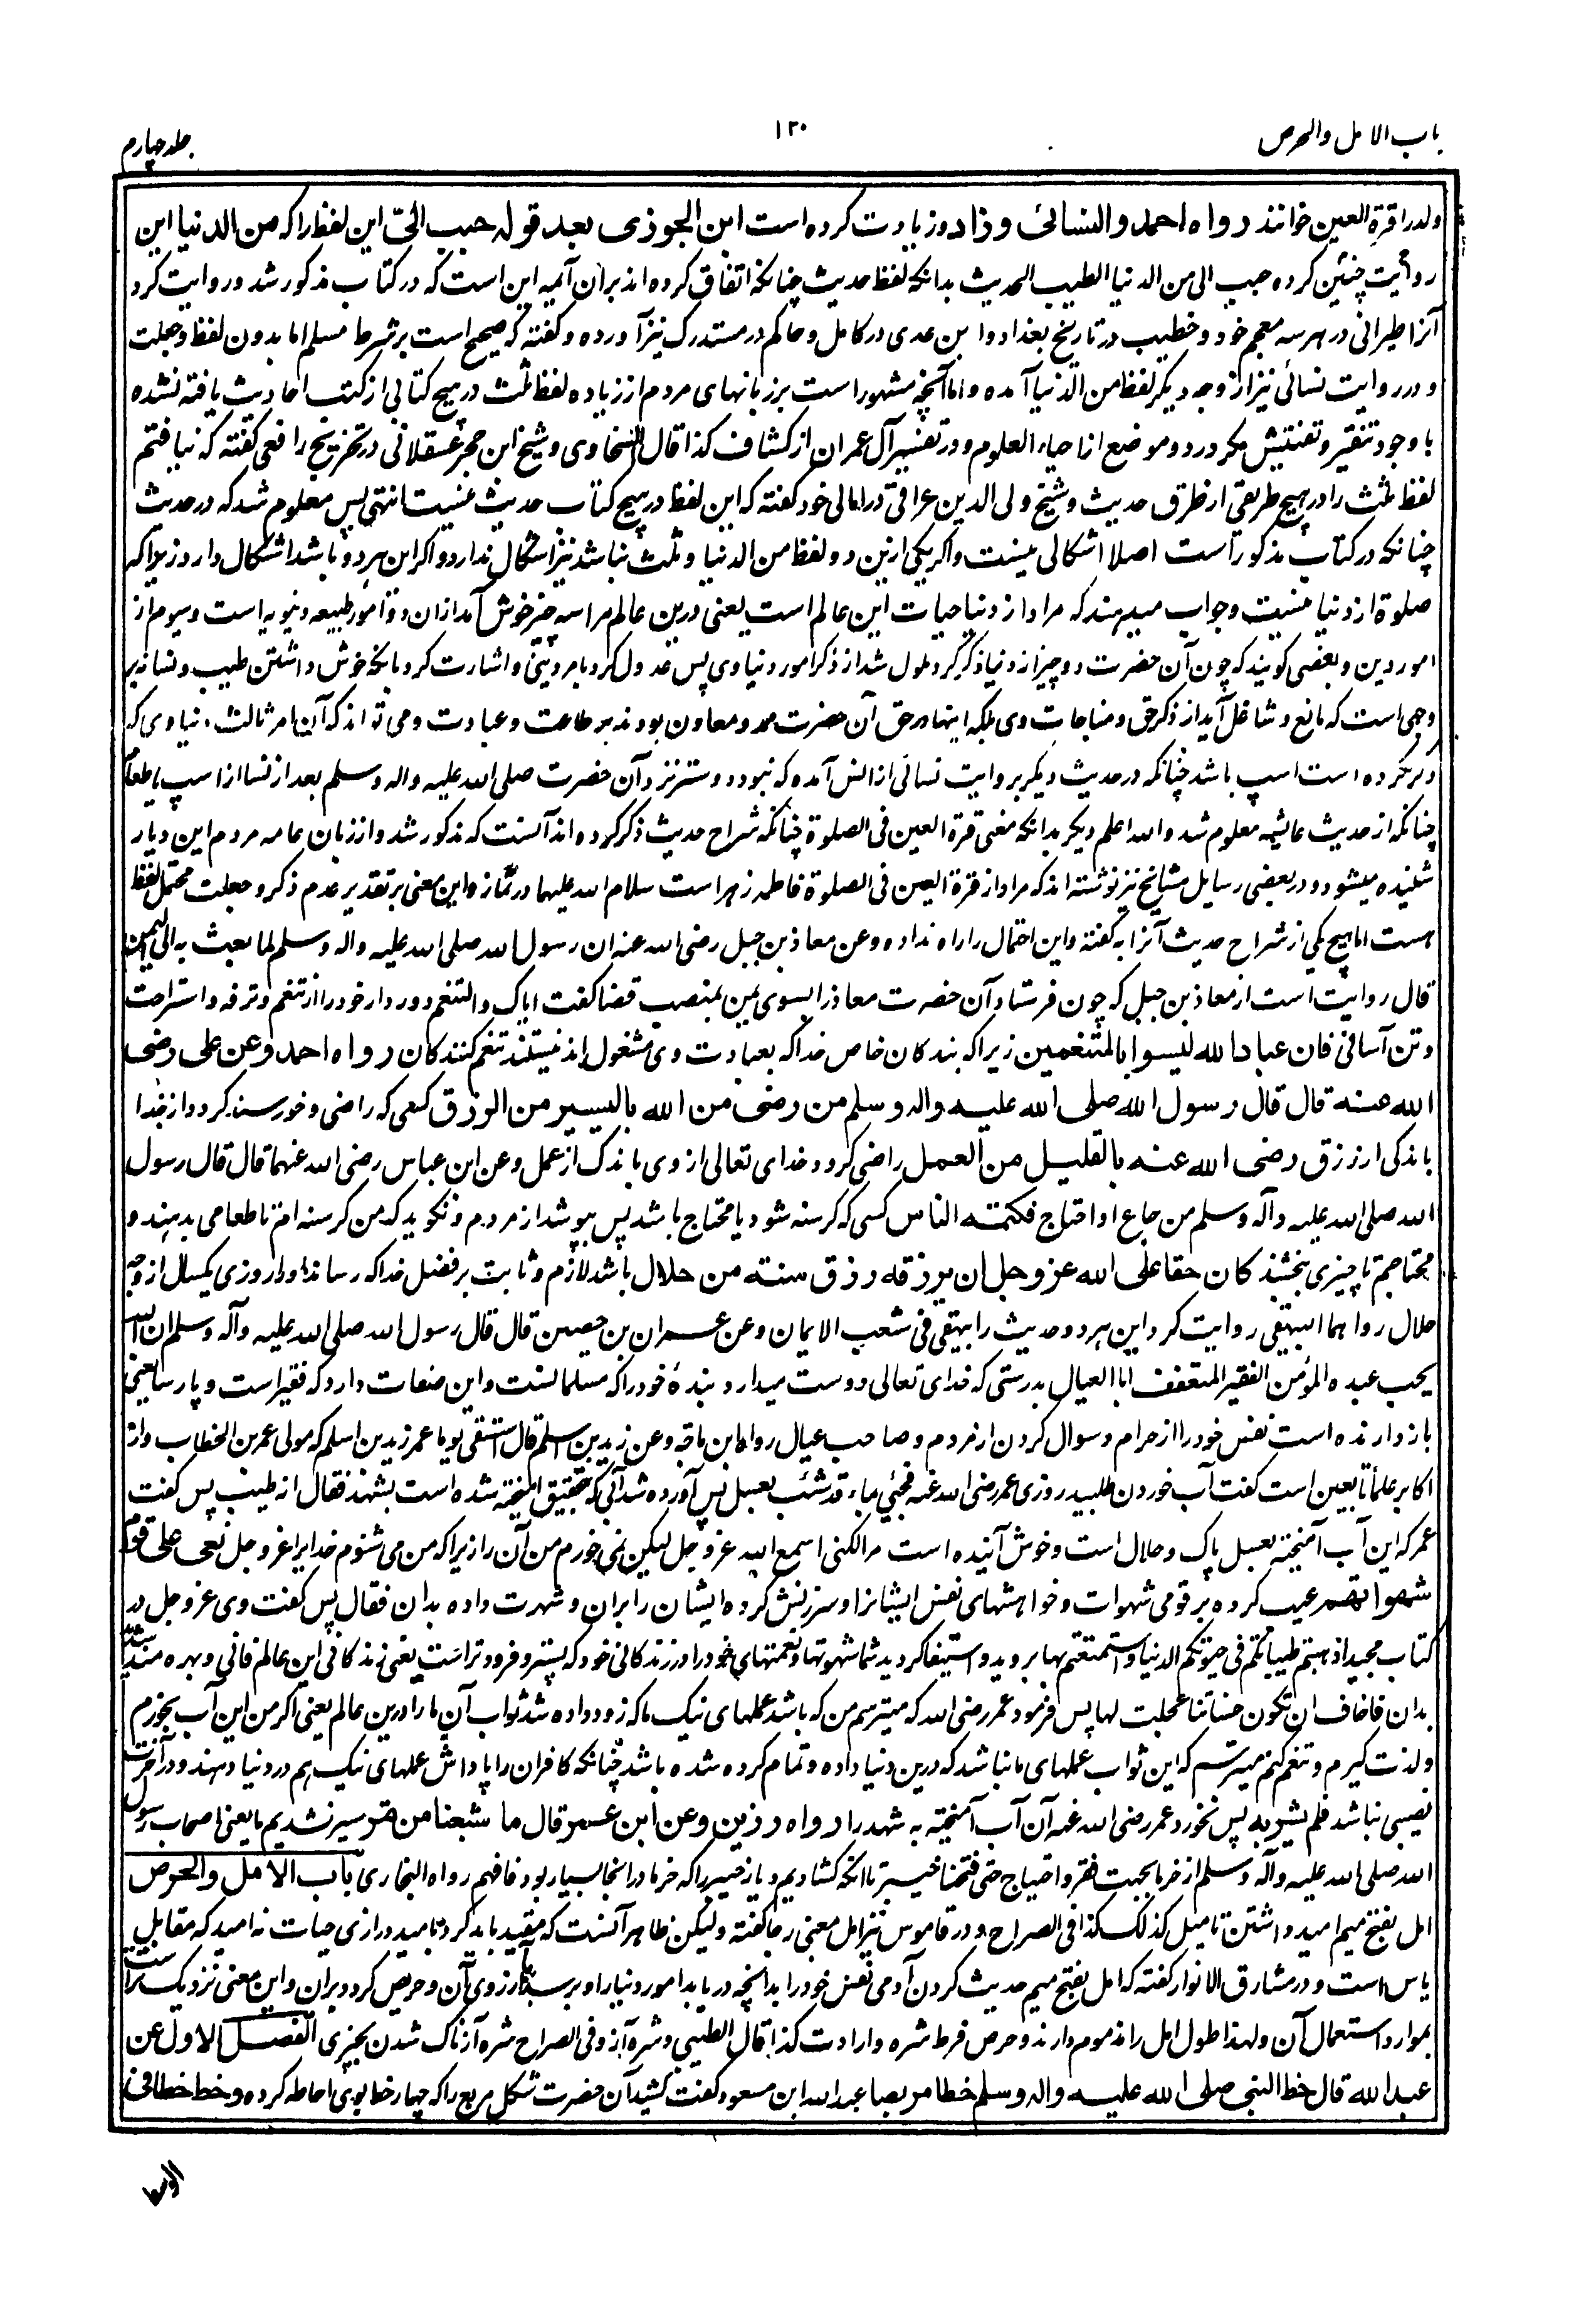 باب الامل والحرص
۱۳۰
جلد چهارم
ولد را قرة العین خوانند رواه احمد والنسائی وزاد و زیادت کرده است ابن الجوزی بعد قوله حبب الیّ این لفظ را که من الدنیا این
روایت چنین کرده حبب الی من الدنیا الطیب الحدیث بدانکه لفظ حدیث چنانکه اتفاق کرده اند بر آن آئمه این است که در کتاب مذکور شد و روایت کرد
آنرا طبرانی در هر سه معجم خود و خطیب در تاریخ بغداد و ابن عدی در کامل و حاکم در مستدرک نیز آورده و گفته که صحیح است بر شرط مسلم اما بدون لفظ وجعلت
و در روایت نسائی نیز از وجه دیگر لفظ من الدنیا آمده و اما آنچه مشهور است بر زبانهای مردم از زیاده لفظ ثلث در هیچ کتابی از کتب احادیث یافته نشده
با وجود تنقیر و تفتیش مگر در دو موضع از احیاء العلوم و در تفسیر آل عمران از کشاف کذا قال السخاوی و شیخ ابن حجر عسقلانی در تخریج رافعی گفته که نیافتم
لفظ ثلث را در هیچ طریقی از طرق حدیث و شیخ ولی الدین عراقی در امالی خود گفته که این لفظ در هیچ کتاب حدیث نیست انتهی پس معلوم شد که در حدیث
چنانکه در کتاب مذکور است اصلا اشکالی نیست و اگر یکی ازین دو لفظ من الدنیا و ثلث نباشد نیز اشکال ندارد و اگر این هر دو باشد اشکال دارد زیرا که
صلوة از دنیا نیست و جواب میدهند که مراد از دنیا حیات این عالم است یعنی درین عالم مرا سه چیز خوش آمد از ان دو از امور طبیعه دنیویه است و سیوم از
امور دین و بعضی گویند که چون آن حضرت دو چیز از دنیا ذکر کرد ملول شد از ذکر امور دنیاوی پس عدول کرد بامر دینی و اشارت کرد بانکه خوش داشتن طیب و نسا نه بر
وجهی است که مانع و شاغل آید از ذکر حق و مناجات وی بلکه اینها در حق آن حضرت ممد و معاون بودند بر طاعت و عبادت و می تواند که آن امر ثالث دنیاوی که
ذکر نکرده است اسپ باشد چنانکه در حدیث دیگر بروایت نسائی از انس آمده که نبود دوستر نزد آن حضرت صلی الله علیه واله وسلم بعد از نسا از اسپ یا طعام
چنانکه از حدیث عایشه معلوم شد والله اعلم دیگر بدانکه معنی قرة العین فی الصلوة چنانکه شراح حدیث ذکر کرده اند آنست که مذکور شد و از زبان عامه مردم این دیار
شنیده میشود و در بعضی رسایل مشایخ نیز نوشته اند که مراد از قرة العین فی الصلوة فاطمه زهرا است سلام الله علیها در نماز و این معنی بر تقدیر عدم ذکر وجعلت محتمل لفظ
هست اما هیچ یکی از شراح حدیث آنرا به گفته و این احتمال را راه نداده وعن معاذ بن جبل رضی الله عنه ان رسول الله صلی الله علیه واله وسلم لما بعث به الی الیمن
قال روایت است از معاذ بن جبل که چون فرستاد آن حضرت معاذ را بسوی یمن بمنصب قضا گفت ایاک والتنعم دور دار خود را از تنعم و ترفه و استراحت
و تن آسانی فان عباد الله لیسوا بالمتنعمین زیرا که بندگان خاص خدا که بعبادت وی مشغول اند نیستند تنعم کنندگان رواه احمد وعن علی رضی
الله عنه قال قال رسول الله صلی الله علیه واله وسلم من رضی من الله بالیسیر من الرزق کسی که راضی و خورسند گردد از خدا
باندکی از رزق رضی الله عنه بالقلیل من العمل راضی گردد خدای تعالی از وی باندک از عمل وعن ابن عباس رضی الله عنهما قال قال رسول
الله صلی الله علیه وآله وسلم من جاع او احتاج فکتمه الناس کسی که گرسنه شود یا محتاج باشد پس بپوشد از مردم و نگوید که من گرسنه ام تا طعامی بدهند و
محتاجم تا چیزی بخشند کان حقا علی الله عز وجل ان یرزقه رزق سنته من حلال باشد لازم و ثابت بر فضل خدا که رساند او را روزی یکسال از وجه
حلال رواهما البیهقی روایت کرد این هر دو حدیث را بیهقی فی شعب الایمان وعن عمران بن حصین قال قال رسول الله صلی الله علیه وآله وسلم ان الله
یحب عبده المؤمن الفقیر المتعفف ابا العیال بدرستی که خدای تعالی دوست میدارد بندهٔ خود را که مسلمانست و این صفات دارد که فقیر است و پارسا یعنی
باز دارنده است نفس خود را از حرام و سوال کردن از مردم و صاحب عیال رواه ابن ماجه وعن زید بن اسلم قال استسقی یوما عمر زید بن اسلم که مولی عمر بن الخطاب و از
اکابر علماء تابعین است گفت آب خوردن طلبید روزی عمر رضی الله عنه فجئی بماء قد شیب بعسل پس آورده شد آبی که بتحقیق آمیخته شده است بشهد فقال انه طیب پس گفت
عمر که این آب آمیخته بعسل پاک و حلال است و خوش آینده است مرا لکنی اسمع الله عز وجل لیکن نمی خورم من آن را زیرا که من می شنوم خدایرا عز وجل نعی علی قوم
شهواتهم عیب کرده بر قومی شهوات و خواهشهای نفس ایشانرا و سرزنش کرده ایشان را بران و شهرت داده بدان فقال پس گفت وی عز وجل در
کتاب مجید اذهبتم طیباتکم فی حیوتکم الدنیا واستمتعتم بها بردید و استیفا کردید شما شهوتها و نعمتهای خود را در زندگانی خود که پستر و فرودتر است یعنی زندگانی این عالم فانی و بهره مند شدید
بدان فاخاف ان تکون حسناتنا عجلت لها پس فرمود عمر رضی الله که میترسم من که باشد عملهای نیک ما که زود داده شد ثواب آن ما را درین عالم یعنی اگر من این آب بخورم
و لذت گیرم و تنعم کنم میترسم که این ثواب عملهای ما نباشد که درین دنیا داده و تمام کرده شده باشد چنانکه کافران را پاداش عملهای نیک هم در دنیا دهند و در آخرت
نصیبی نباشد فلم یشربه پس نخورد عمر رضی الله عنه آن آب آمیخته به شهد را رواه رزین وعن ابن عمر قال ما شبعنا من تمر سیر نشدیم ما یعنی اصحاب رسول
الله صلی الله علیه وآله وسلم از خرما بجهت فقر و احتیاج حتی فتحنا خیبر تا آنکه گشادیم دیار خیبر را که خرما در انجا بسیار بود فافهم رواه البخاری باب الامل والحرص
امل بفتح میم امید داشتن تامیل کذلک کذا فی الصراح و در قاموس نیز امل معنی رجا گفته و لیکن ظاهر آنست که مقید باید کرد بامید درازی حیات نه امید که مقابل
یاس است و در مشارق الانوار گفته که امل بفتح میم حدیث کردن آدمی نفس خود را بدانچه دریابد امور دنیا را و برسد بآرزوی آن و حریص گردد بران و این معنی نزدیک تراست
بموارد استعمال آن ولهذا طول امل را مذموم دارند و حرص فرط شره و ارادت کذا قال الطیبی و شره آز و فی الصراح شره آزناک شدن بچیزی الفصل الاول عن
عبد الله قال خط النبی صلی الله علیه واله وسلم خطا مربعا عبد الله ابن مسعود گفت کشید آن حضرت شکل مربع را که چهار خط بوی احاطه کرده وخط خطا فی